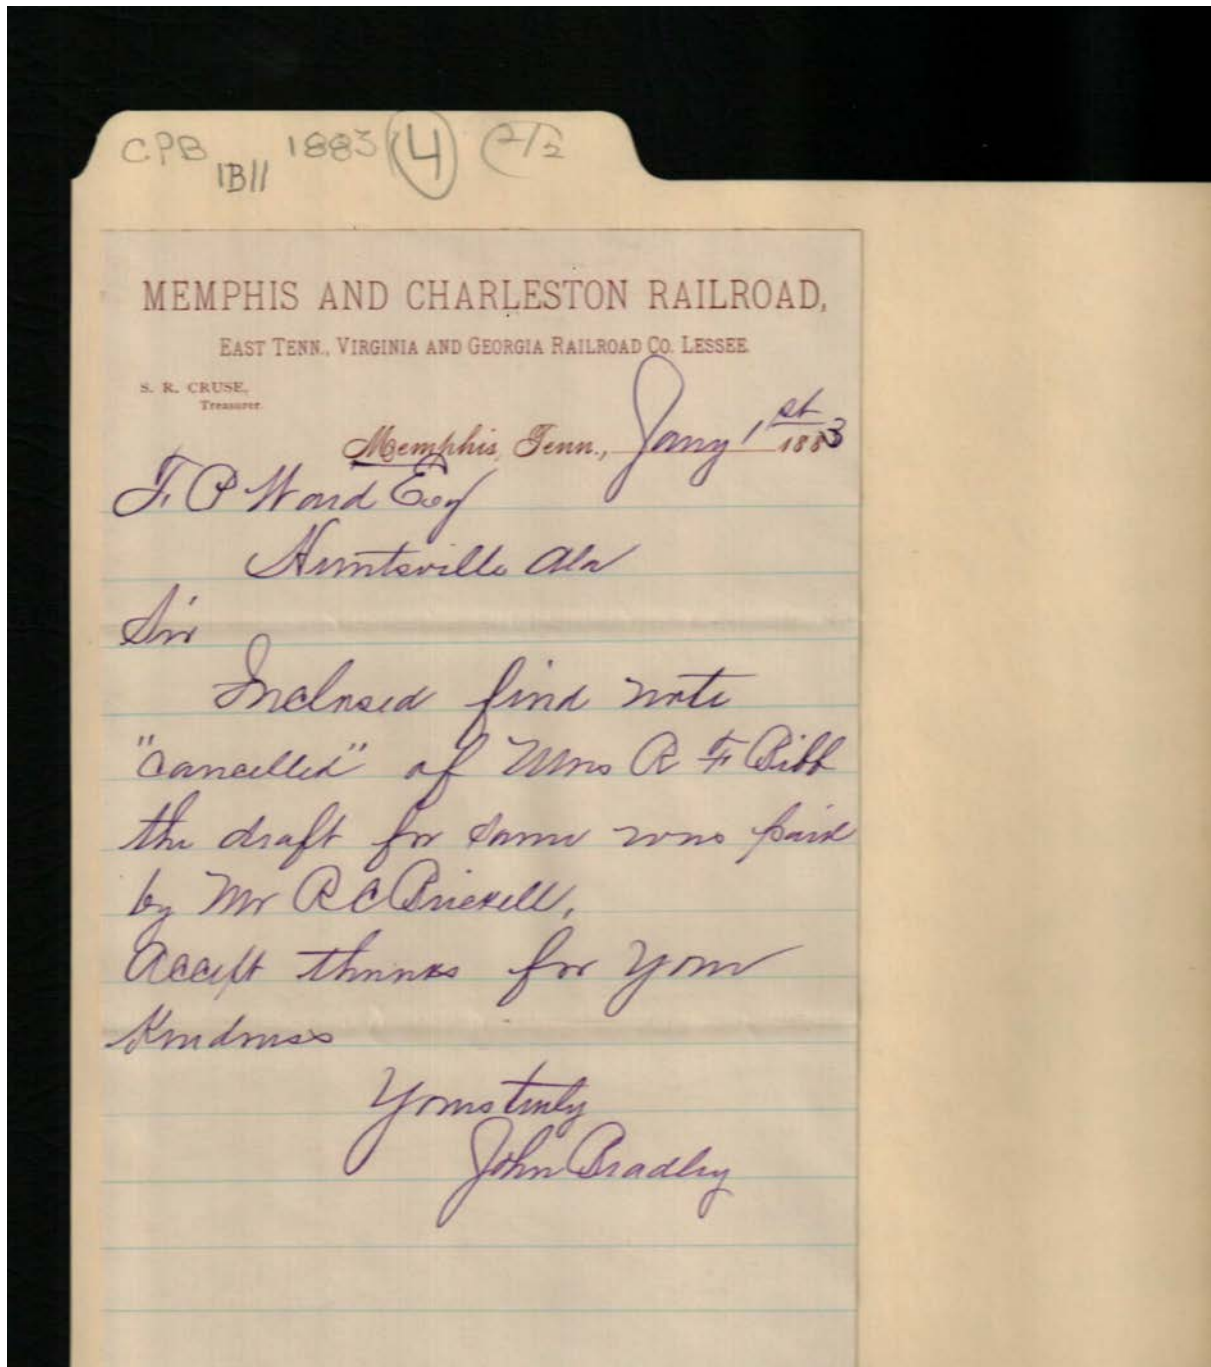 CPB 1883 (4) (2/2)
1B11
MEMPHIS AND CHARLESTON RAILROAD,
EAST TENN., VIRGINIA AND GEORGIA RAILROAD CO. LESSEE.
S. R. CRUSE,
Treasurer.
Memphis, Tenn., Jany 1st 1883
F. P Ward Esq
Huntsville Ala
Sir
Inclosed find note
"cancelled" of Mrs R F Bibb
the draft for same was paid
by Mr R C Brickell,
Accept thanks for your
Kindness
Yours truly
John Bradley